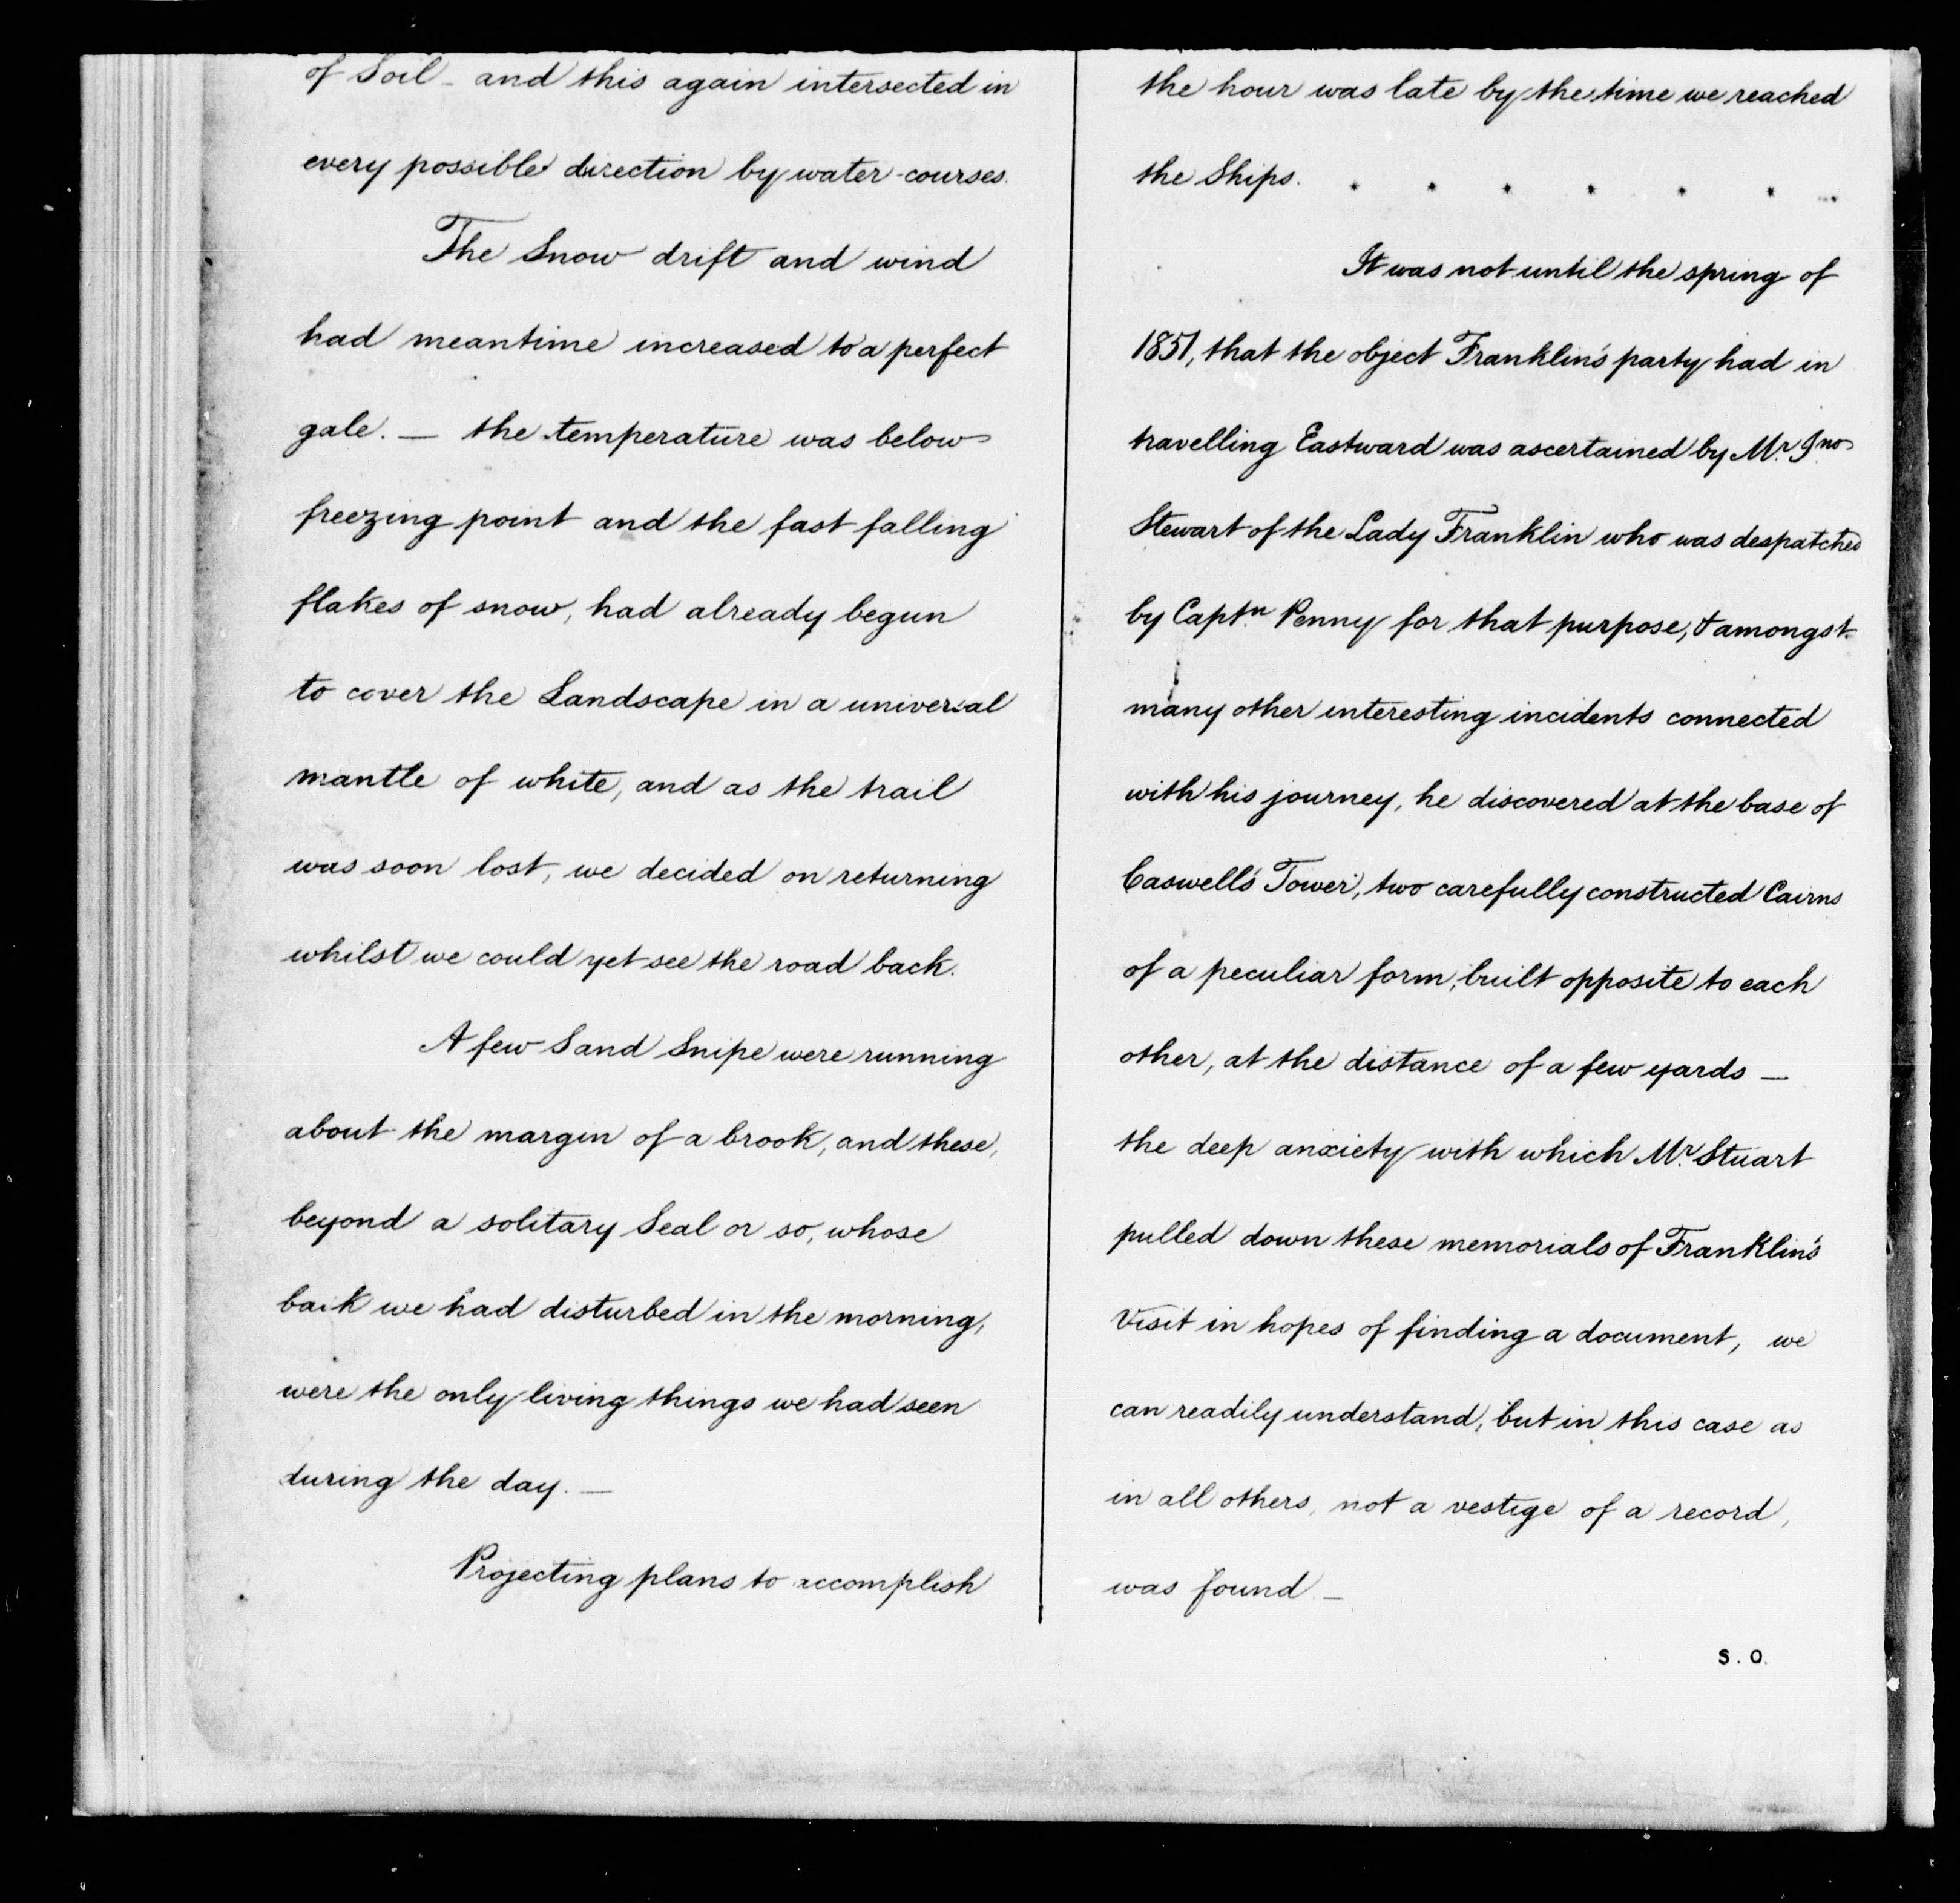 of Soil - and this again intersected in
every possible direction by water-courses.
The Snow drift and wind
had meantime increased to a perfect
gale. — the temperature was below
freezing point and the fast falling
flakes of snow, had already begun
to cover the Landscape in a universal
mantle of white, and as the trail
was soon lost, we decided on returning
whilst we could yet see the road back.
A few Sand Snipe were running
about the margin of a brook, and these,
beyond a solitary Seal or so, whose
back we had disturbed in the morning,
were the only living things we had seen
during the day. —
Projecting plans to accomplish
the hour was late by the time we reached
the Ships. . . . . . . .
It was not until the spring of
1851, that the object Franklin's party had in
travelling Eastward was ascertained by Mr. Jno
Stewart of the Lady Franklin who was despatched
by Captn. Penny for that purpose, & amongst
many other interesting incidents connected
with his journey, he discovered at the base of
Caswell's Tower, two carefully constructed Cairns
of a peculiar form, built opposite to each
other, at the distance of a few yards —
the deep anxiety with which Mr. Stuart
pulled down these memorials of Franklin's
Visit in hopes of finding a document, we
can readily understand, but in this case as
in all others, not a vestige of a record,
was found. —
S. O.